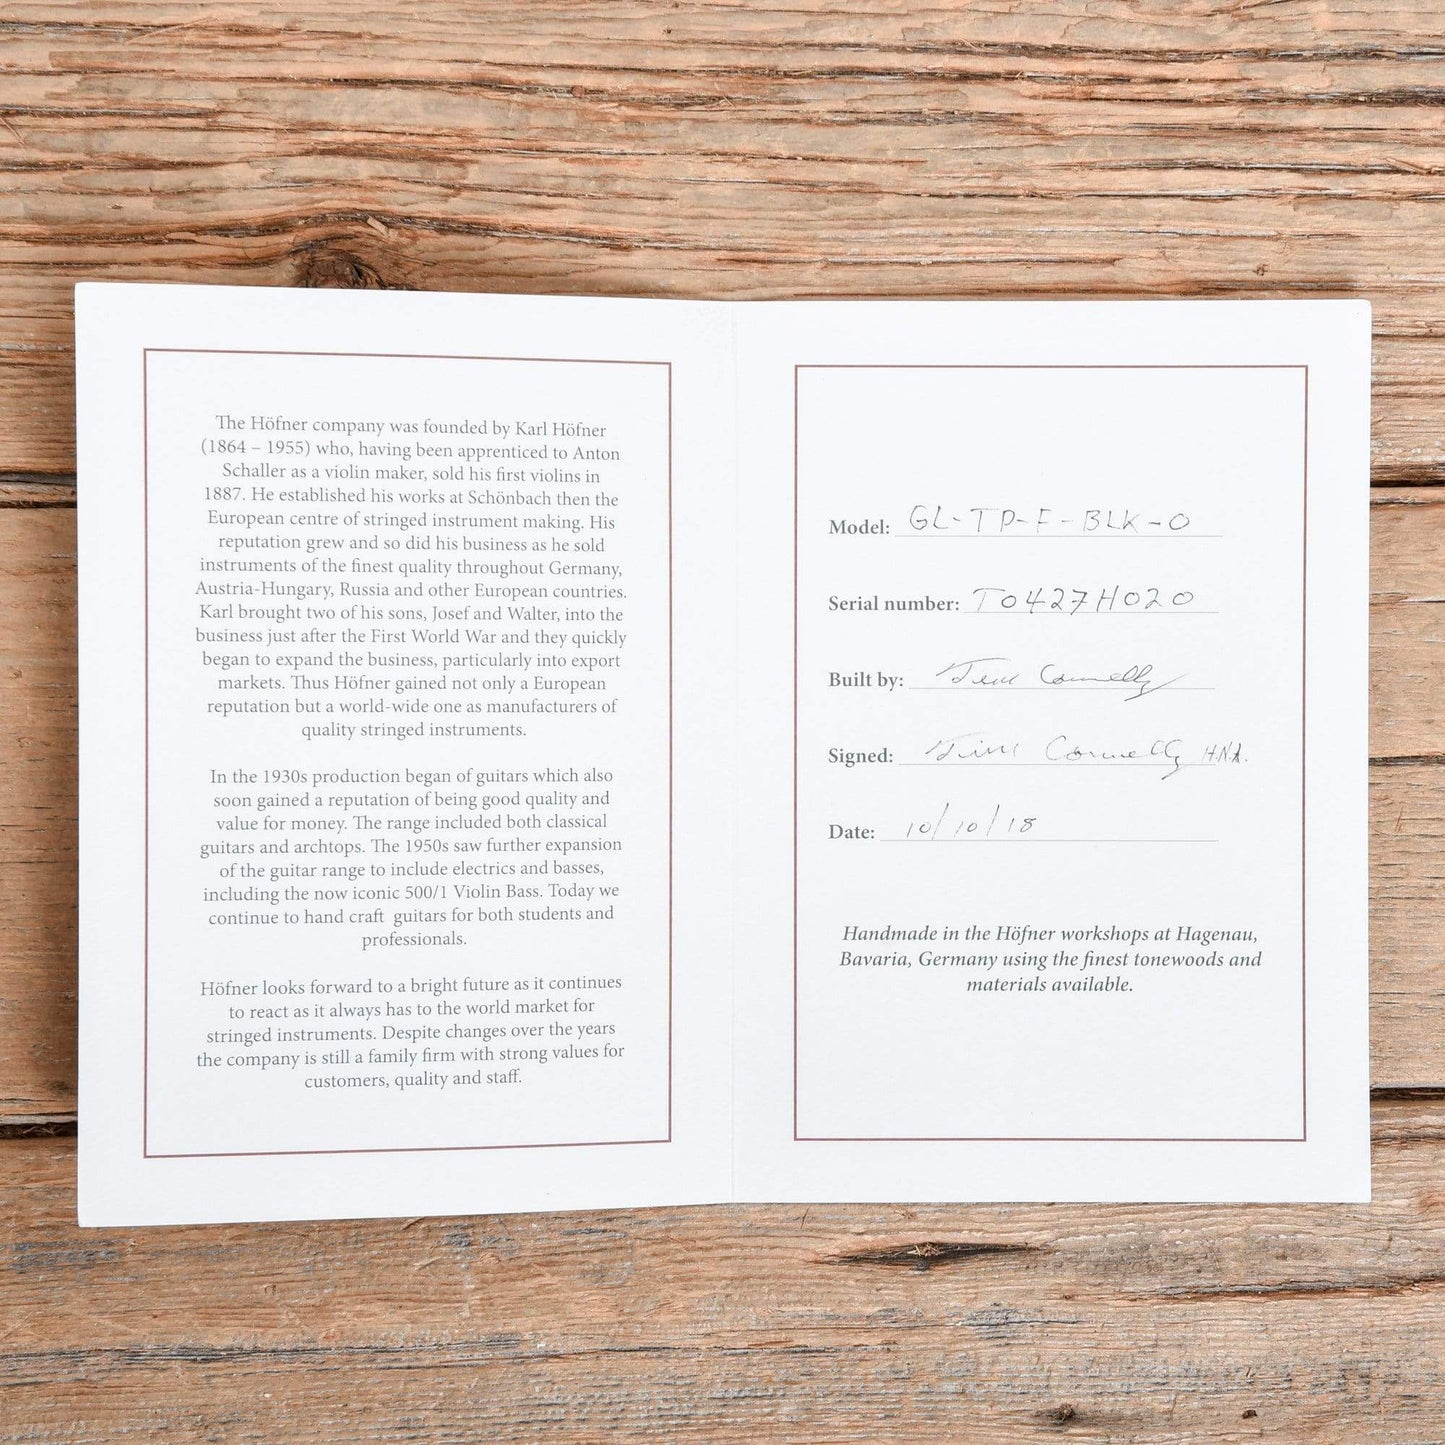 The Höfner company was founded by Karl Höfner
(1864 – 1955) who, having been apprenticed to Anton
Schaller as a violin maker, sold his first violins in
1887. He established his works at Schönbach then the
European centre of stringed instrument making. His
reputation grew and so did his business as he sold
instruments of the finest quality throughout Germany,
Austria-Hungary, Russia and other European countries.
Karl brought two of his sons, Josef and Walter, into the
business just after the First World War and they quickly
began to expand the business, particularly into export
markets. Thus Höfner gained not only a European
reputation but a world-wide one as manufacturers of
quality stringed instruments.
In the 1930s production began of guitars which also
soon gained a reputation of being good quality and
value for money. The range included both classical
guitars and archtops. The 1950s saw further expansion
of the guitar range to include electrics and basses,
including the now iconic 500/1 Violin Bass. Today we
continue to hand craft guitars for both students and
professionals.
Höfner looks forward to a bright future as it continues
to react as it always has to the world market for
stringed instruments. Despite changes over the years
the company is still a family firm with strong values for
customers, quality and staff.
Model: GL-TP-F-BLK-O
Serial number: T0427H020
Built by: Connelly
Signed: Connelly H.N.A.
Date: 10/10/18
Handmade in the Höfner workshops at Hagenau,
Bavaria, Germany using the finest tonewoods and
materials available.